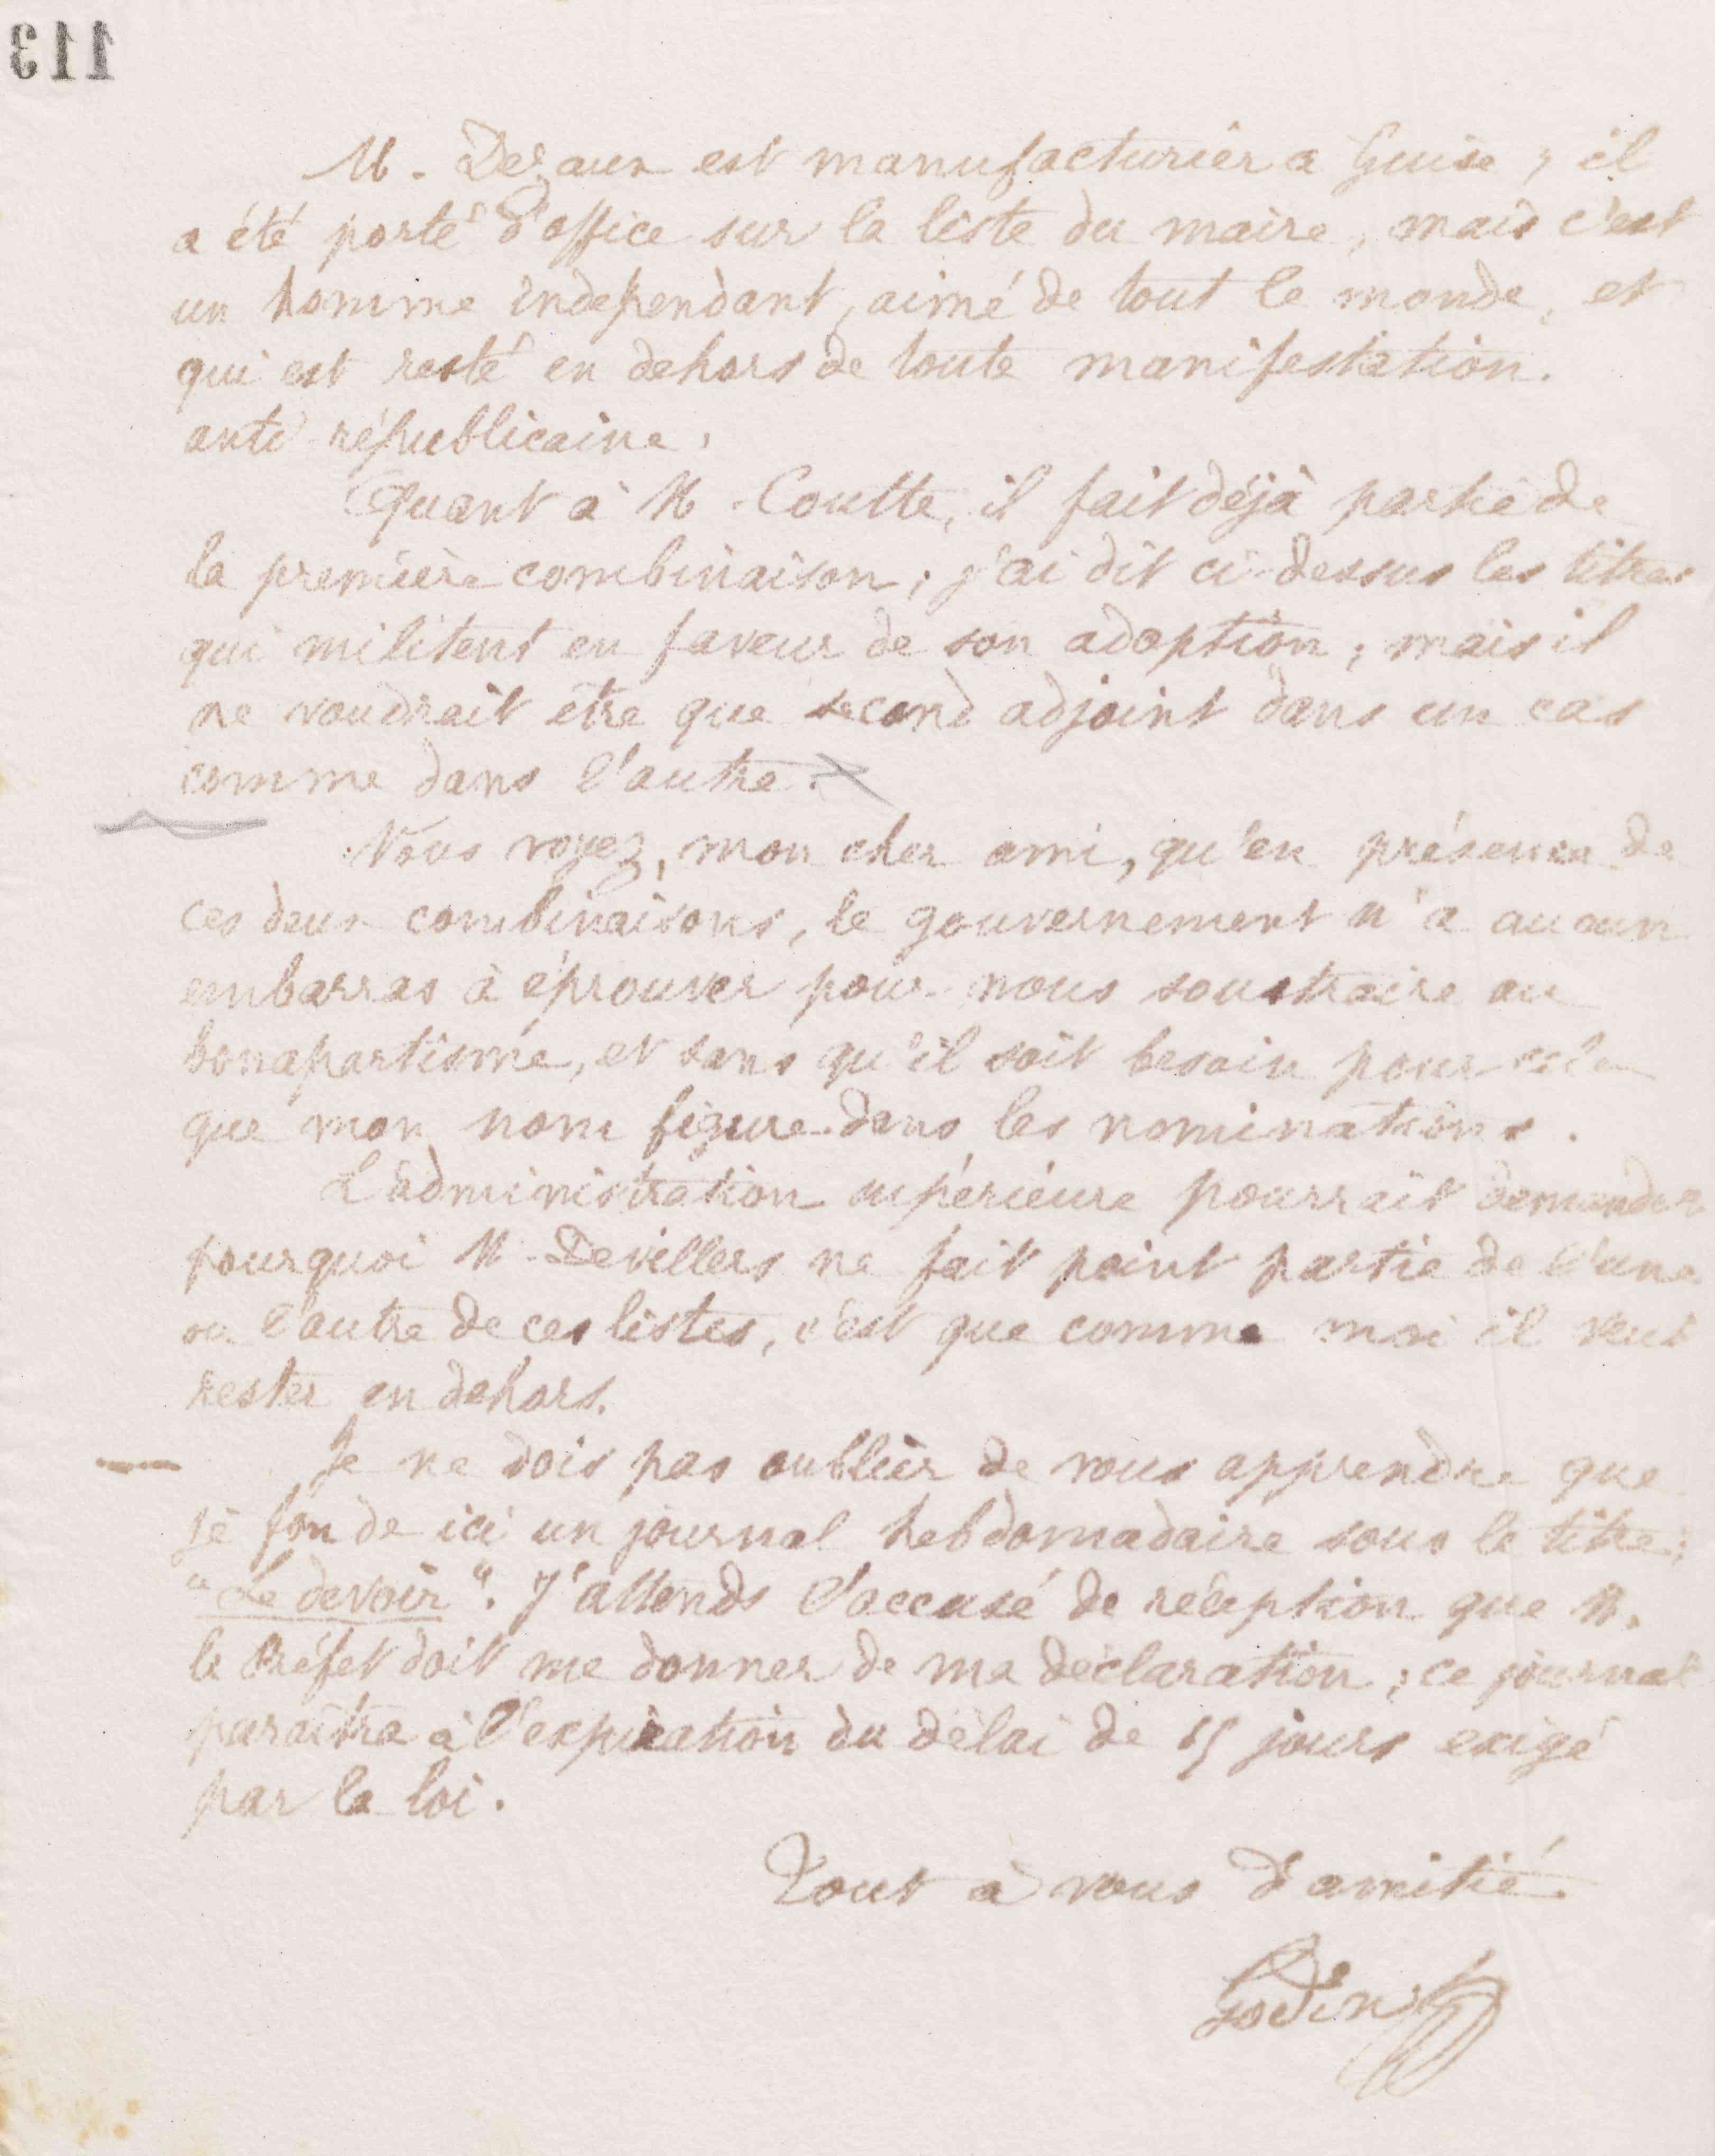 113
M. Dezaux est manufacturier à Guise ; il
a été porté d'office sur la liste du maire, mais c'est
un homme independant, aimé de tout le monde, et
qui est resté en dehors de toute manifestation.
anti-républicaine.
Quant à M. Coutte, il fait déjà partie de
la première combinaison ; j'ai dit ci-dessus les titres
qui militent en faveur de son adoption ; mais il
ne voudrait être que second adjoint dans un cas
comme dans l'autre.
Vous voyez, mon cher ami, qu'en présence de
ces deux combinaisons, le gouvernement n'a aucun
embarras à éprouver pour nous soustraire au
bonapartisme, et sans qu'il soit besoin pour cela
que mon nom figure dans les nominations.
L'administration supérieure pourrait demander
pourquoi M. Devillers ne fait point partie de l'une
ou l'autre de ces listes, c'est que comme moi il veut
rester en dehors.
Je ne dois pas oublier de vous apprendre que
je fonde ici un journal hebdomadaire sous le titre :
"Le devoir". J'attends l'accusé de réception que M.
le Préfet doit me donner de ma déclaration ; ce journal
paraîtra à l'expiration du délai de 15 jours exigé
par la loi.
Tout à vous d'amitié.
Godin